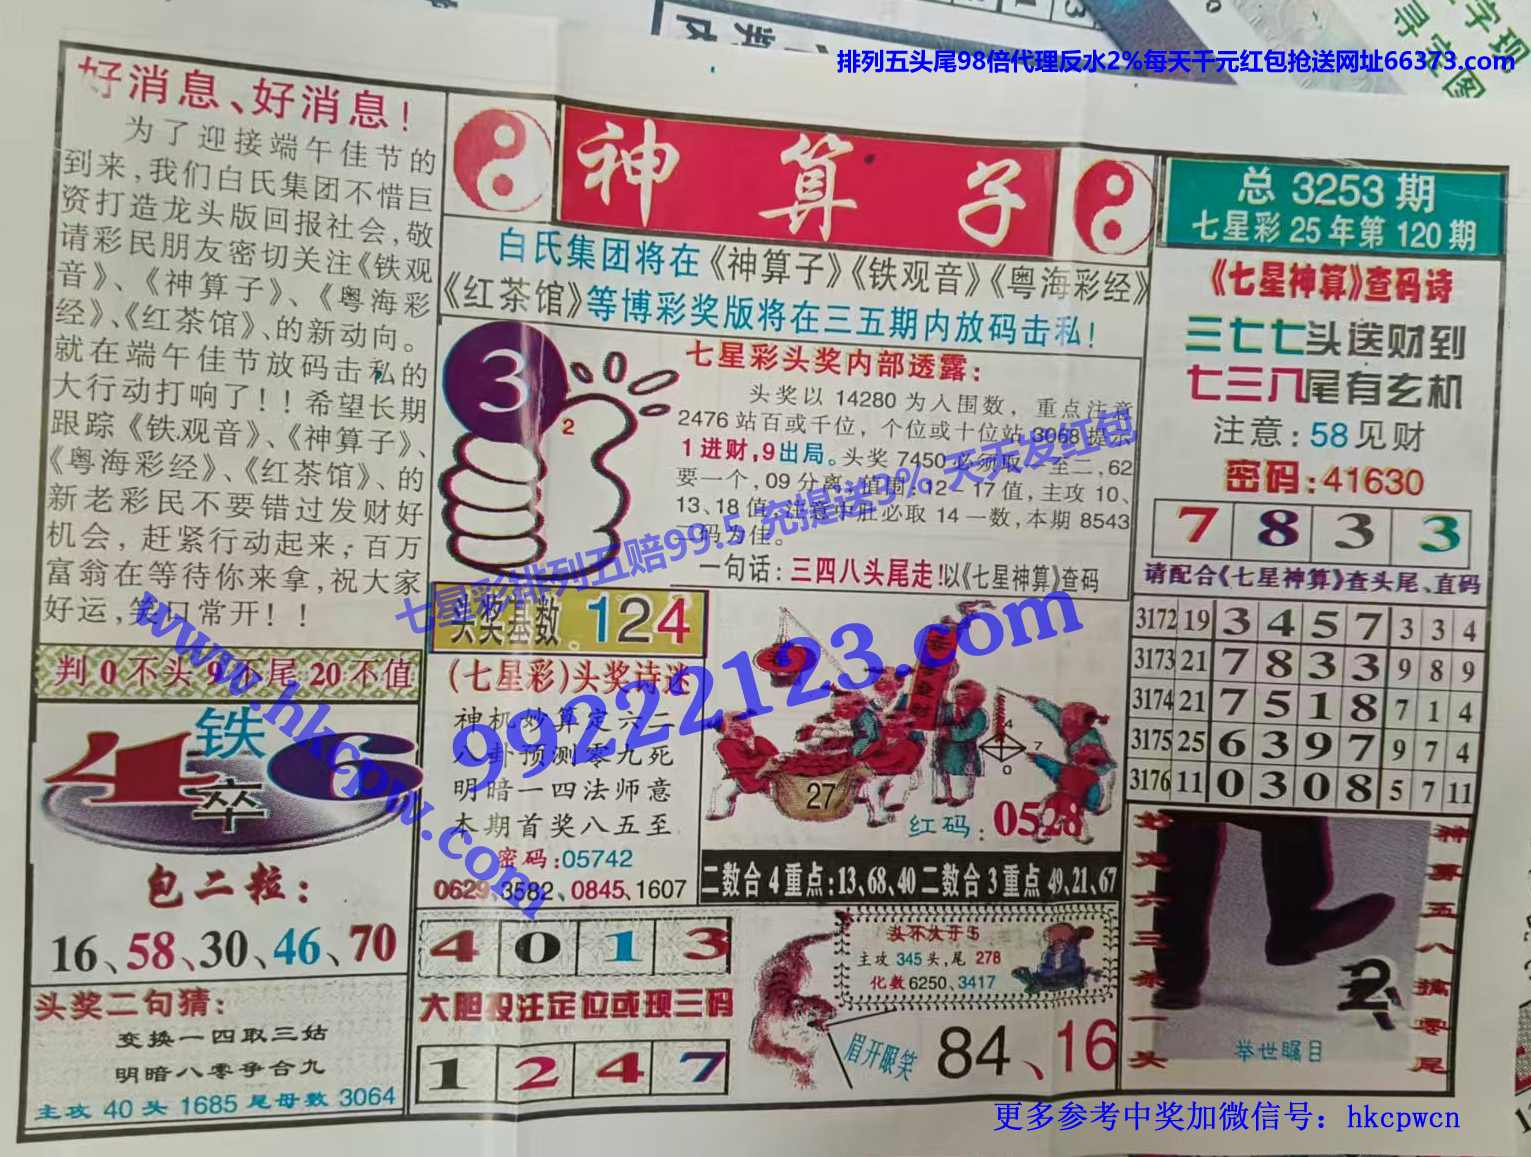 排列五头尾98倍代理反水2%每天千元红包抢送网址66373.com
好消息、好消息！
为了迎接端午佳节的
到来，我们白氏集团不惜巨
资打造龙头版回报社会，敬
请彩民朋友密切关注《铁观
音》、《神算子》、《粤海彩
经》、《红茶馆》、的新动向。
就在端午佳节放码击私的
大行动打响了！！希望长期
跟踪《铁观音》、《神算子》、
《粤海彩经》、《红茶馆》、的
新老彩民不要错过发财好
机会，赶紧行动起来，百万
富翁在等待你来拿，祝大家
好运，笑口常开！！
判0不头9不尾20不值
4铁卒6
包二粒：
16、58、30、46、70
头奖二句猜：
变换一四取三姑
明暗八零争合九
主攻40头1685尾母数3064
神算子
白氏集团将在《神算子》《铁观音》《粤海彩经》
《红茶馆》等博彩奖版将在三五期内放码击私！
3
2
七星彩头奖内部透露：
头奖以14280为入围数，重点注意
2476站百或千位，个位或十位站3068提示
1进财，9出局。头奖7450必须取一至二，62
要一个，09分离，值围：12－17值，主攻10、
13、18值，注意中肚必取14一数，本期8543
二码为佳。
一句话：三四八头尾走！以《七星神算》查码
头奖基数 124
(七星彩)头奖诗迷
神机妙算定六二
八卦预测零九死
明暗一四法师意
本期首奖八五至
密码：05742
0629、3582、0845、1607
4
7
0
27
红码：0528
二数合4重点：13、68、40二数合3重点49、21、67
4 0 1 3
大胆投注定位或现三码
1 2 4 7
头不大于5
主攻345头，尾278
化数6250、3417
眉开眼笑
84、16
总3253期
七星彩25年第120期
《七星神算》查码诗
三七七头送财到
七三八尾有玄机
注意：58见财
密码：41630
7 8 3 3
请配合《七星神算》查头尾、直码
3172 19 3 4 5 7 3 3 4
3173 21 7 8 3 3 9 8 9
3174 21 7 5 1 8 7 1 4
3175 25 6 3 9 7 9 7 4
3176 11 0 3 0 8 5 7 11
神算五八擒零尾
2
举世瞩目
七星彩排列五赔99.5 充提送3% 天天发红包
www.hkcpw.com
99222123.com
更多参考中奖加微信号：hkcpwcn